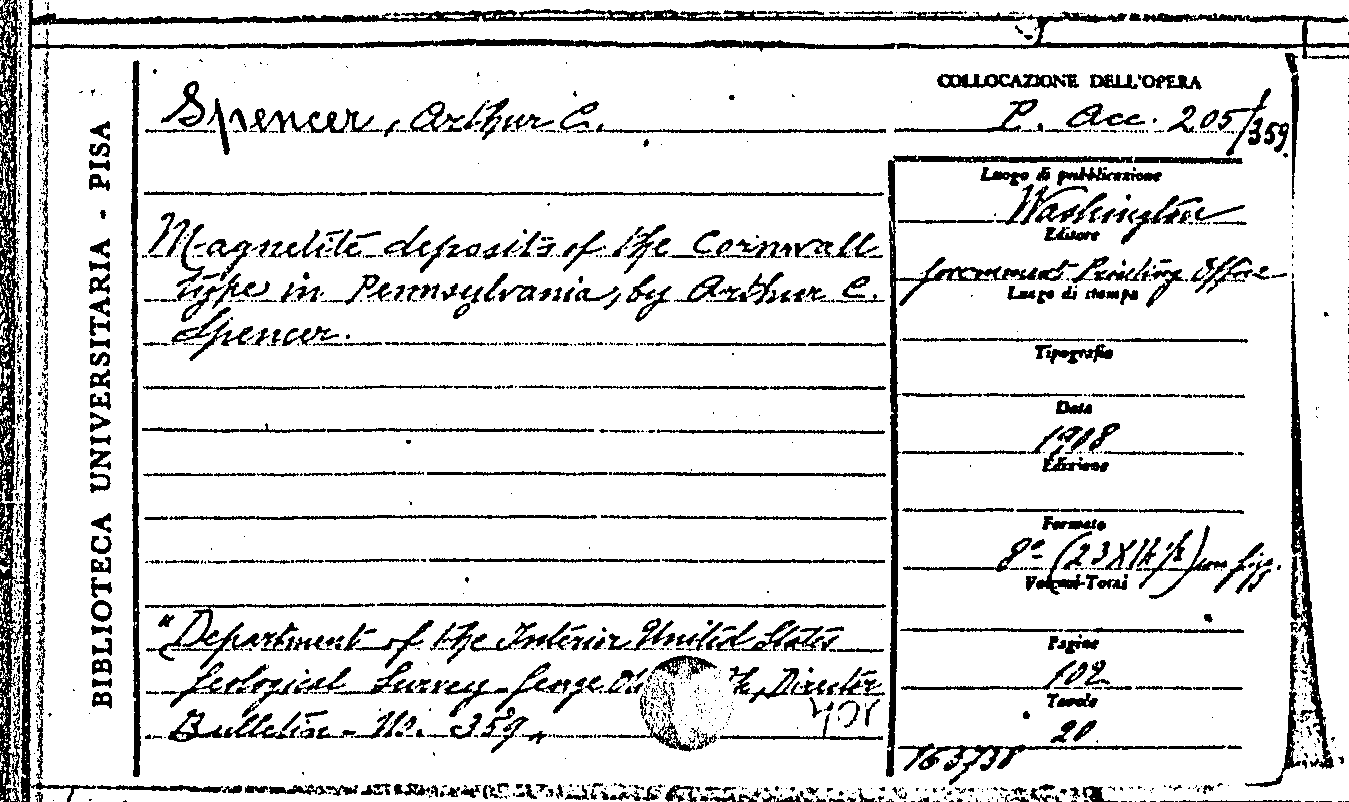 BIBLIOTECA UNIVERSITARIA - PISA
COLLOCAZIONE DELL'OPERA
Spencer, Arthur C.
P. Acc. 205/359
Luogo di pubblicazione
Washington
Editore
Government Printing Office
Luogo di stampa
Tipografia
Data
1908
Edizione
Formato
8° (23X14½) con figg.
Volumi-Totai
Pagine
102
Tavole
20
163738
Magnetite deposits of the Cornwall
type in Pennsylvania, by Arthur C.
Spencer.
"Department of the Interior United States
Geological Survey - George Ot th, Director
Bulletin - No. 359„